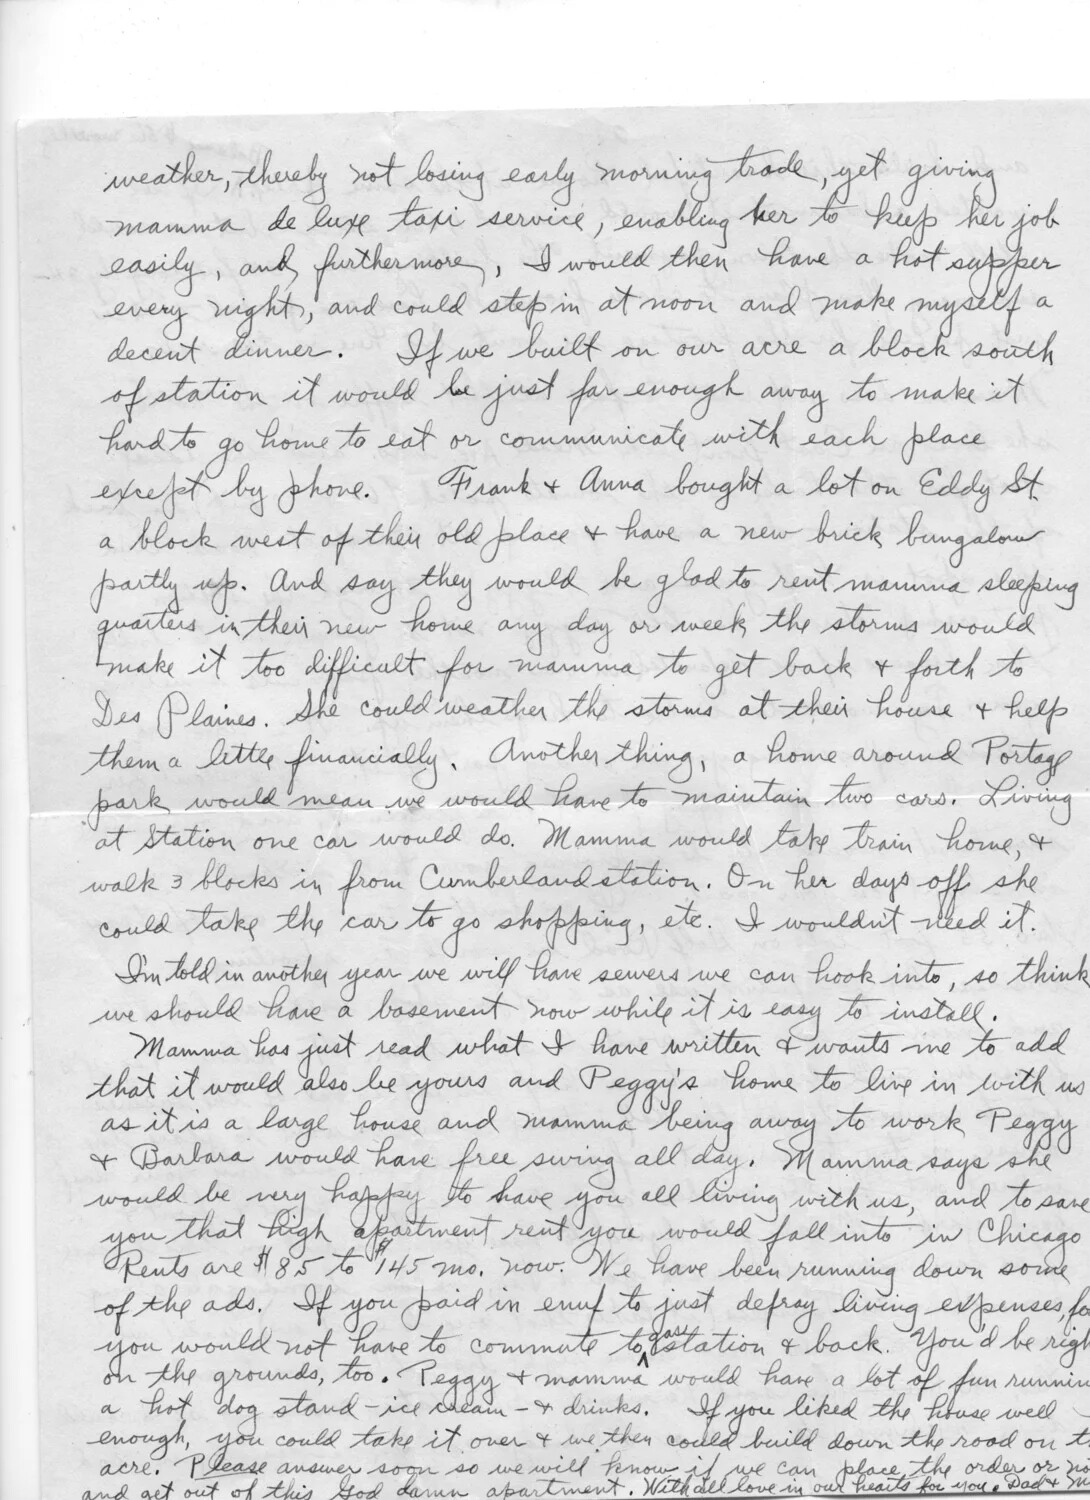 weather, thereby not losing early morning trade, yet giving
mamma de luxe taxi service, enabling her to keep her job
easily, and, furthermore, I would then have a hot supper
every night, and could step in at noon and make myself a
decent dinner. If we built on our acre a block south
of station it would be just far enough away to make it
hard to go home to eat or communicate with each place
except by phone. Frank & Anna bought a lot on Eddy St.
a block west of their old place & have a new brick bungalow
partly up. And say they would be glad to rent mamma sleeping
quarters in their new home any day or week the storms would
make it too difficult for mamma to get back & forth to
Des Plaines. She could weather the storms at their house & help
them a little financially. Another thing, a home around Portage
park would mean we would have to maintain two cars. Living
at Station one car would do. Mamma would take train home, &
walk 3 blocks in from Cumberland station. On her days off she
could take the car to go shopping, etc. I wouldn't need it.
I'm told in another year we will have sewers we can hook into, so think
we should have a basement now while it is easy to install.
Mamma has just read what I have written & wants me to add
that it would also be yours and Peggy's home to live in with us
as it is a large house and mamma being away to work Peggy
& Barbara would have free swing all day. Mamma says she
would be very happy to have you all living with us, and to save
you that high apartment rent you would fall into in Chicago
Rents are $85 to $145 mo. now. We have been running down some
of the ads. If you paid in enuf to just defray living expenses, for
you would not have to commute to gas station & back. You'd be righ
on the grounds, too. Peggy & mamma would have a lot of fun runnin
a hot dog stand - ice cream - & drinks. If you liked the house well
enough, you could take it over & we then could build down the road on t
acre. Please answer soon so we will know if we can place the order or no
and get out of this God damn apartment. With all love in our hearts for you. Dad & M